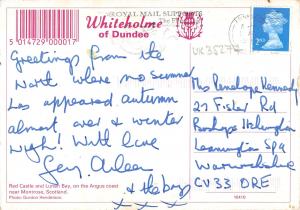 Whiteholme
of Dundee
5 014729 000017
ROYAL MAIL SUPPORTS
2ND
Greetings from the
North where no summer
has appeared autumn
almost over & winter
nigh! With love
& the boys
x x x
Miss Penelope Kennedy
27 Rd
Leamington SPA
Warwickshire
CV33
Red Castle and Lunan Bay, on the Angus coast
near Montrose, Scotland.
Photo: Gordon Henderson.